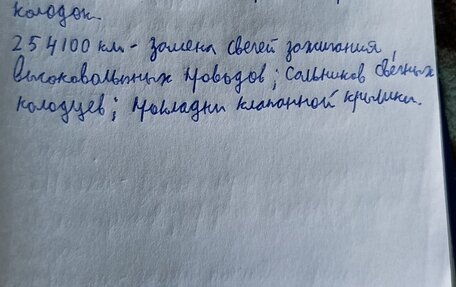 колодок.
254100 км - Замена свечей зажигания,
высоковольтных проводов; Сальников свечных
колодцев; прокладки клапанной крышки.